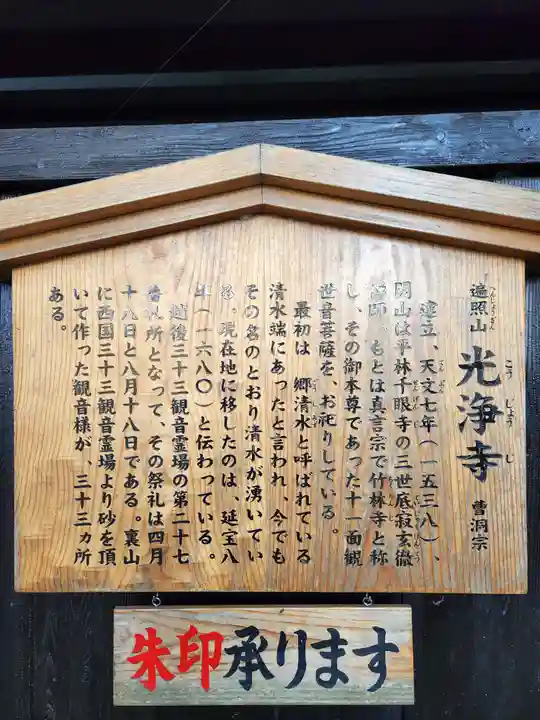 遍照山 光浄寺 曹洞宗
へんじょうざん こうじょうじ
建立、天文七年(一五三八)、
開山は平林千眼寺の三世底寂玄徹
禅師。もとは真言宗で竹林寺と称
し、その御本尊であった十一面観
世音菩薩を、お祀りしている。
最初は 郷清水と呼ばれている
清水端にあったと言われ、今でも
その名のとおり清水が湧いてい
る。現在地に移したのは、延宝八
年(一六八〇)と伝わっている。
越後三十三観音霊場の第二十七
番札所となって、その祭礼は四月
十八日と八月十八日である。裏山
に西国三十三観音霊場より砂を頂
いて作った観音様が、三十三ヵ所
ある。
朱印承ります